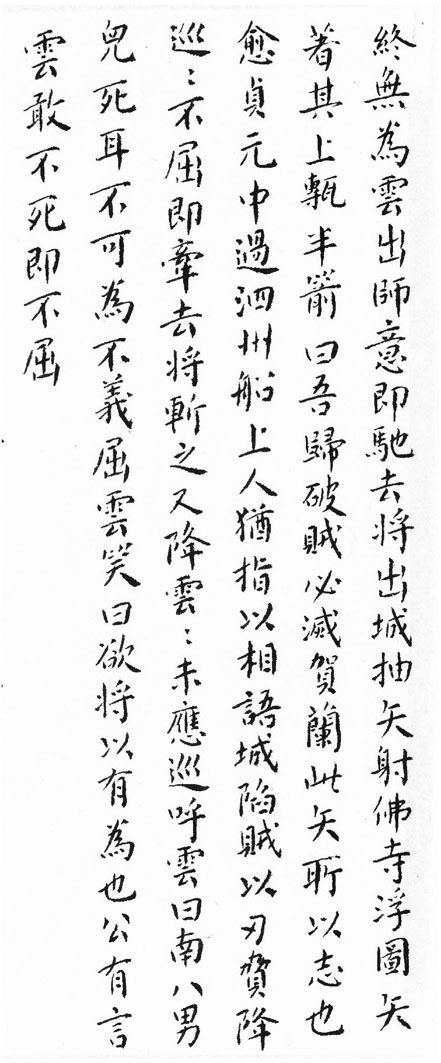 終無為雲出師意即馳去將出城抽矢射佛寺浮圖矢
著其上甎半箭曰吾歸破賊必滅賀蘭此矢所以志也
愈貞元中過泗州船上人猶指以相語城陷賊以刃脅降
巡〻不屈即牽去將斬之又降雲〻未應巡呼雲曰南八男
兒死耳不可為不義屈雲笑曰欲將以有為也公有言
雲敢不死即不屈